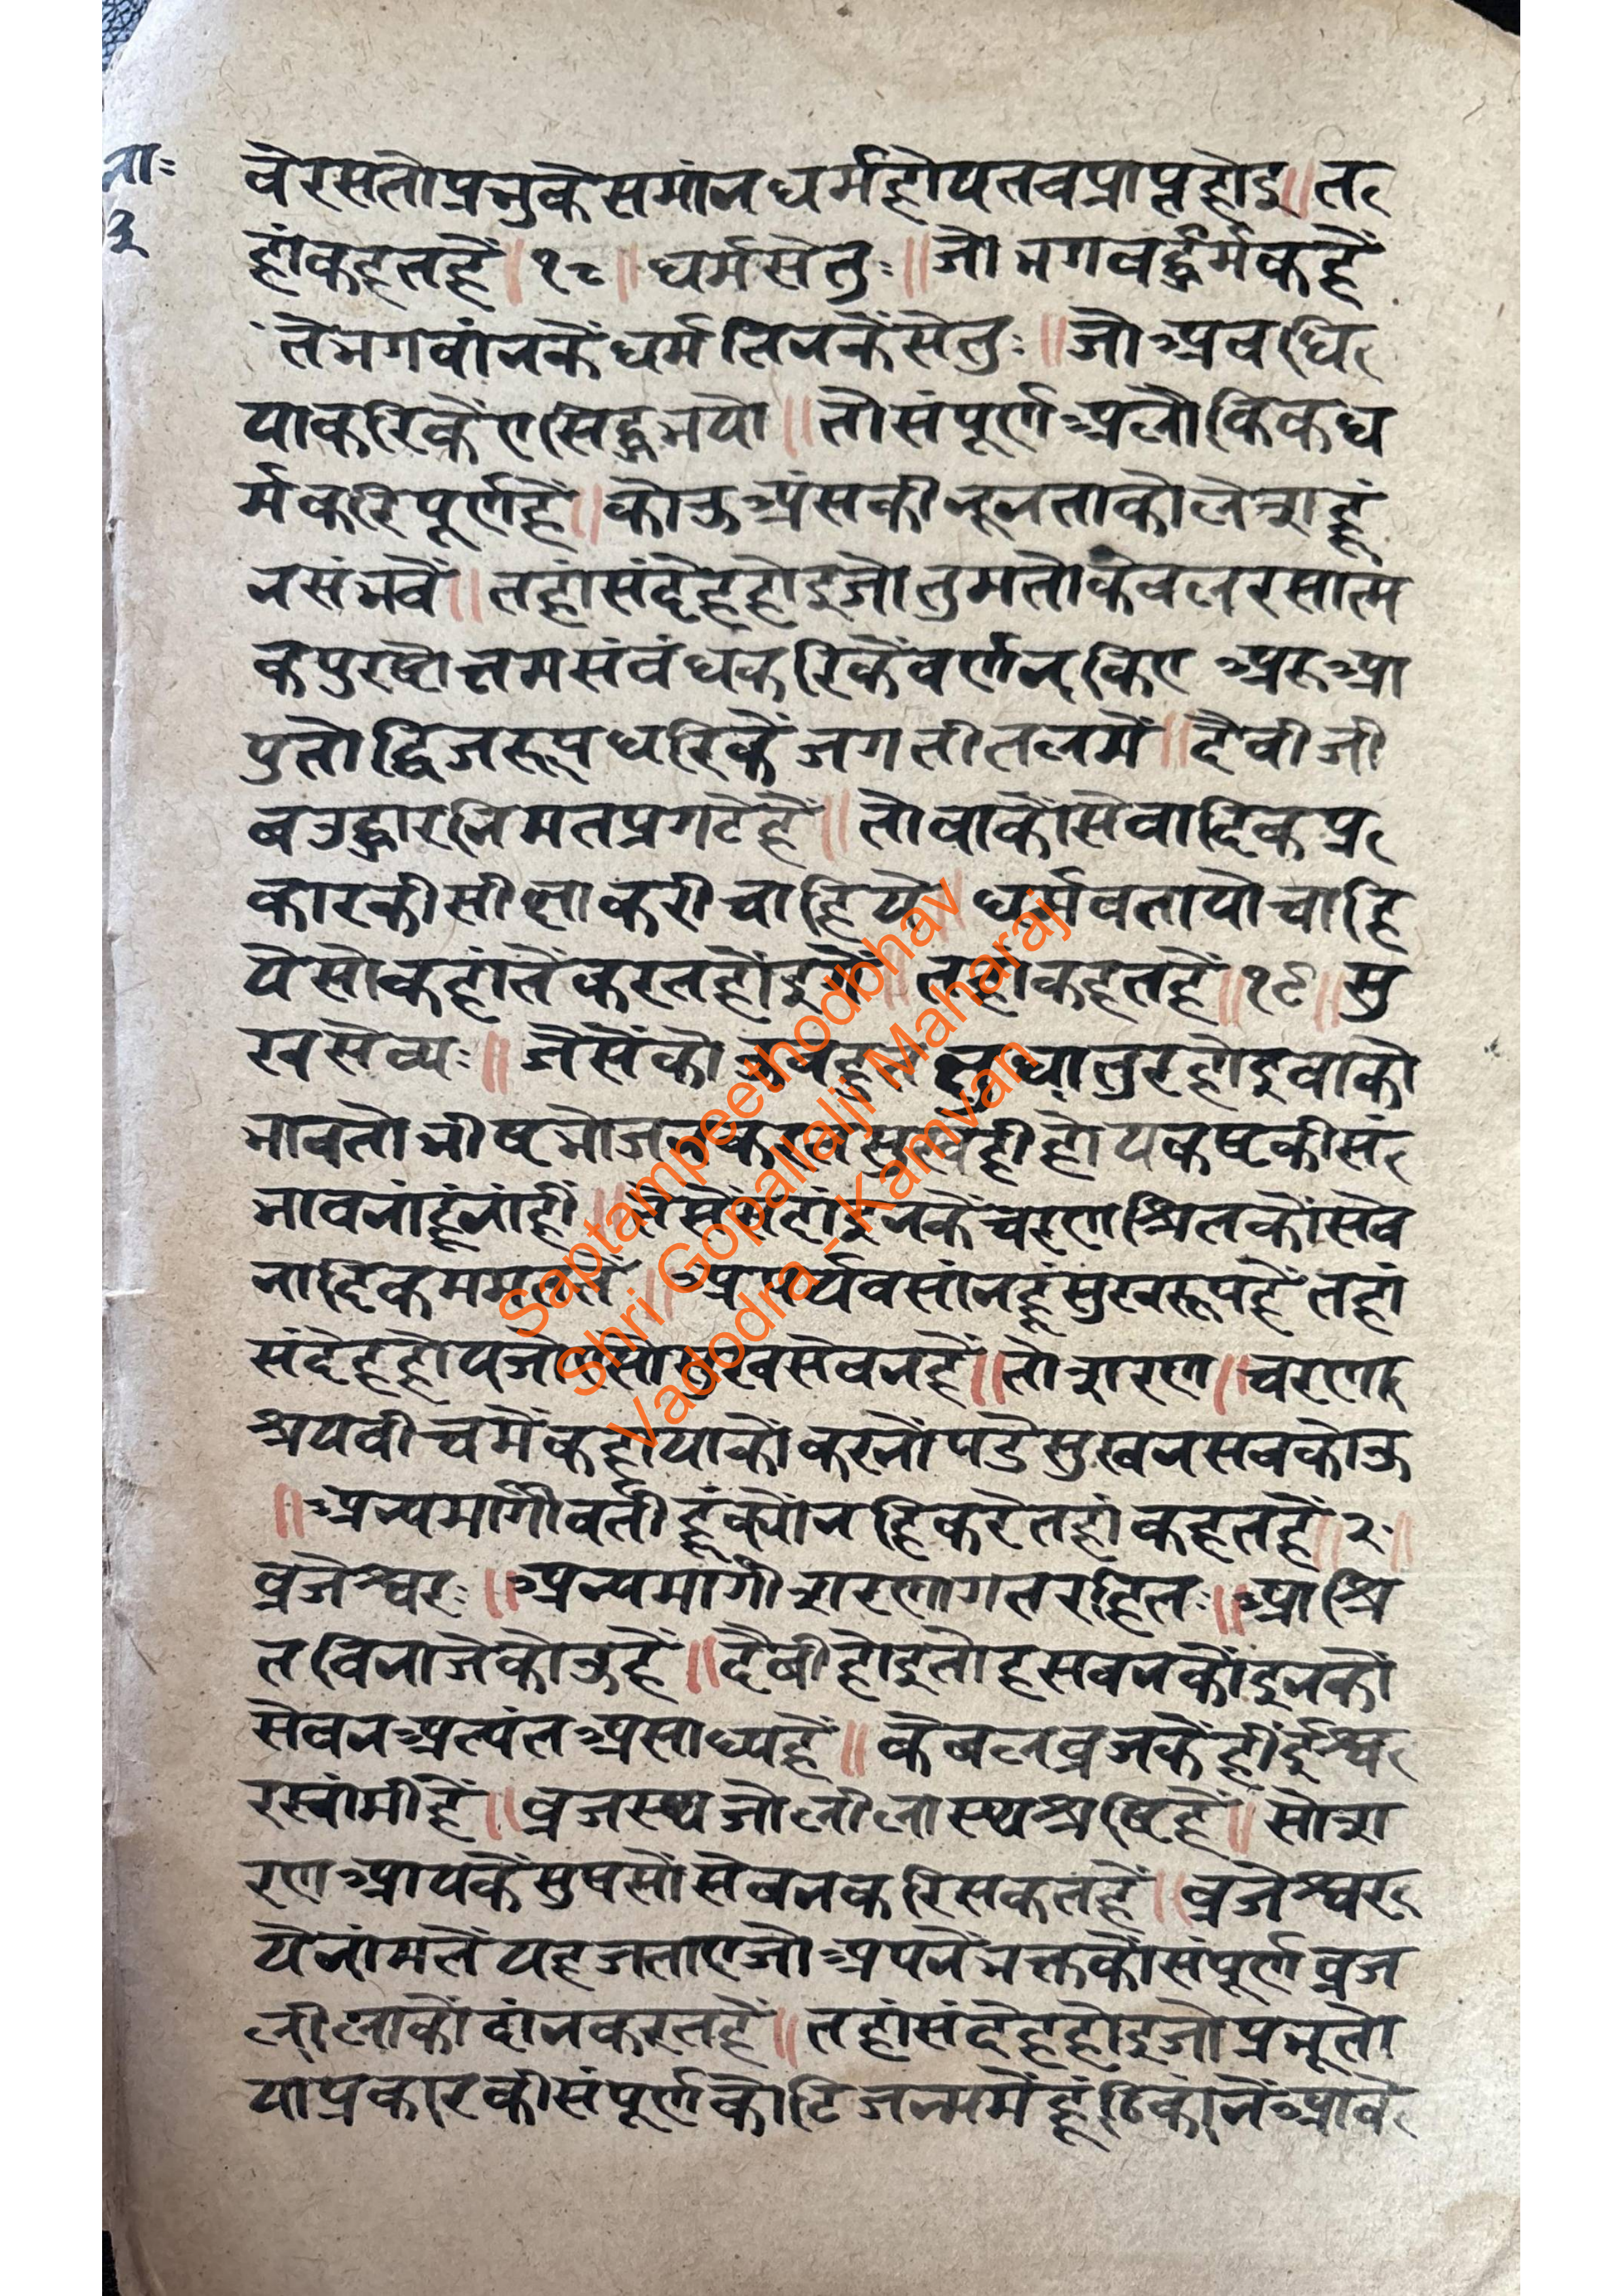 ना॰
३
वेरसतोप्रभुकेसमांनधर्महोयतबप्राप्तहोइ॥त
हांकहतहैं॥१८॥धर्मसेतुः॥जोभगवर्द्धर्मकहैं
तेभगवांनकेंधर्मतिनकेंसेतुः॥जोअवधि
याकरिकेंएसिद्धभयो॥तोसंपूर्णअलौकिकध
र्मकरिपूर्णहैं॥कोऊअंसकीनूनताकोलेशहूं
नसंभवें॥तहांसंदेहहोइजोतुमतोकेवलरसात्म
कपुरषोत्तमसंबंधकरिकेंवर्णनकिएअरुआ
पुतोद्विजरूपधरिकेंजगतीतलमें॥दैवीजी
वउद्धारनिमतप्रगटेहैं॥तोवाकोंसेवादिकप्र
कारकीसीक्षाकरीचाहिये॥धर्मबतायोचाहि
येसोकहांतेंकरतहोंइगें॥तहांकहतहैं॥१९॥सु
खसेव्यः॥जेसेंकोऊबहुत क्षुधातुरहोइवाको
भावतोभीषभोजनकरत सुखही होयकष्टकीसं
भावनांहूंनांहीं॥तेसेंईहांइनकेंचरणाश्रितकोंसेव
नादिकमममततें॥अरुपर्यवसांनहूंसुखरूपहैंतहां
संदेहहोयजोऐसोसुखसेवनहैं॥तोशरण॥चरणा
श्रयबीचमेंकहायाकोंकरनोंपडैसुखनसबकोऊ
॥अन्यमार्गीवर्तीहूंक्योंनहिकरेतहांकहतहैं॥२॰॥
व्रजेश्वरः॥अन्यमार्गीशरणागतरहितः॥आश्रि
तविनाजेकोऊहैं॥दैबीहोइतोहसबनकोंइनकों
सेवनअत्यंतअसाध्यहैं॥केबलव्रजकेंहींईश्व
रस्वांमीहैं॥व्रजस्थजोलीलास्थश्रष्टिहैं॥सोश
रणआयकेंसुषसोंसेबनकरिसकतहैं॥व्रजेश्वर
येनांमतेंयहजताएजोअपनेंभक्तकोंसंपूर्णव्रज
लीलाकोंदांनकरतहैं॥तहांसंदेहहोइजोप्रभूतो
याप्रकारकीसंपूर्णकोटिजन्ममेंहूंठिकांनेंआवे
Saptampeethodbhav
Shri Gopallalji Maharaj
Vadodra - Kamvan